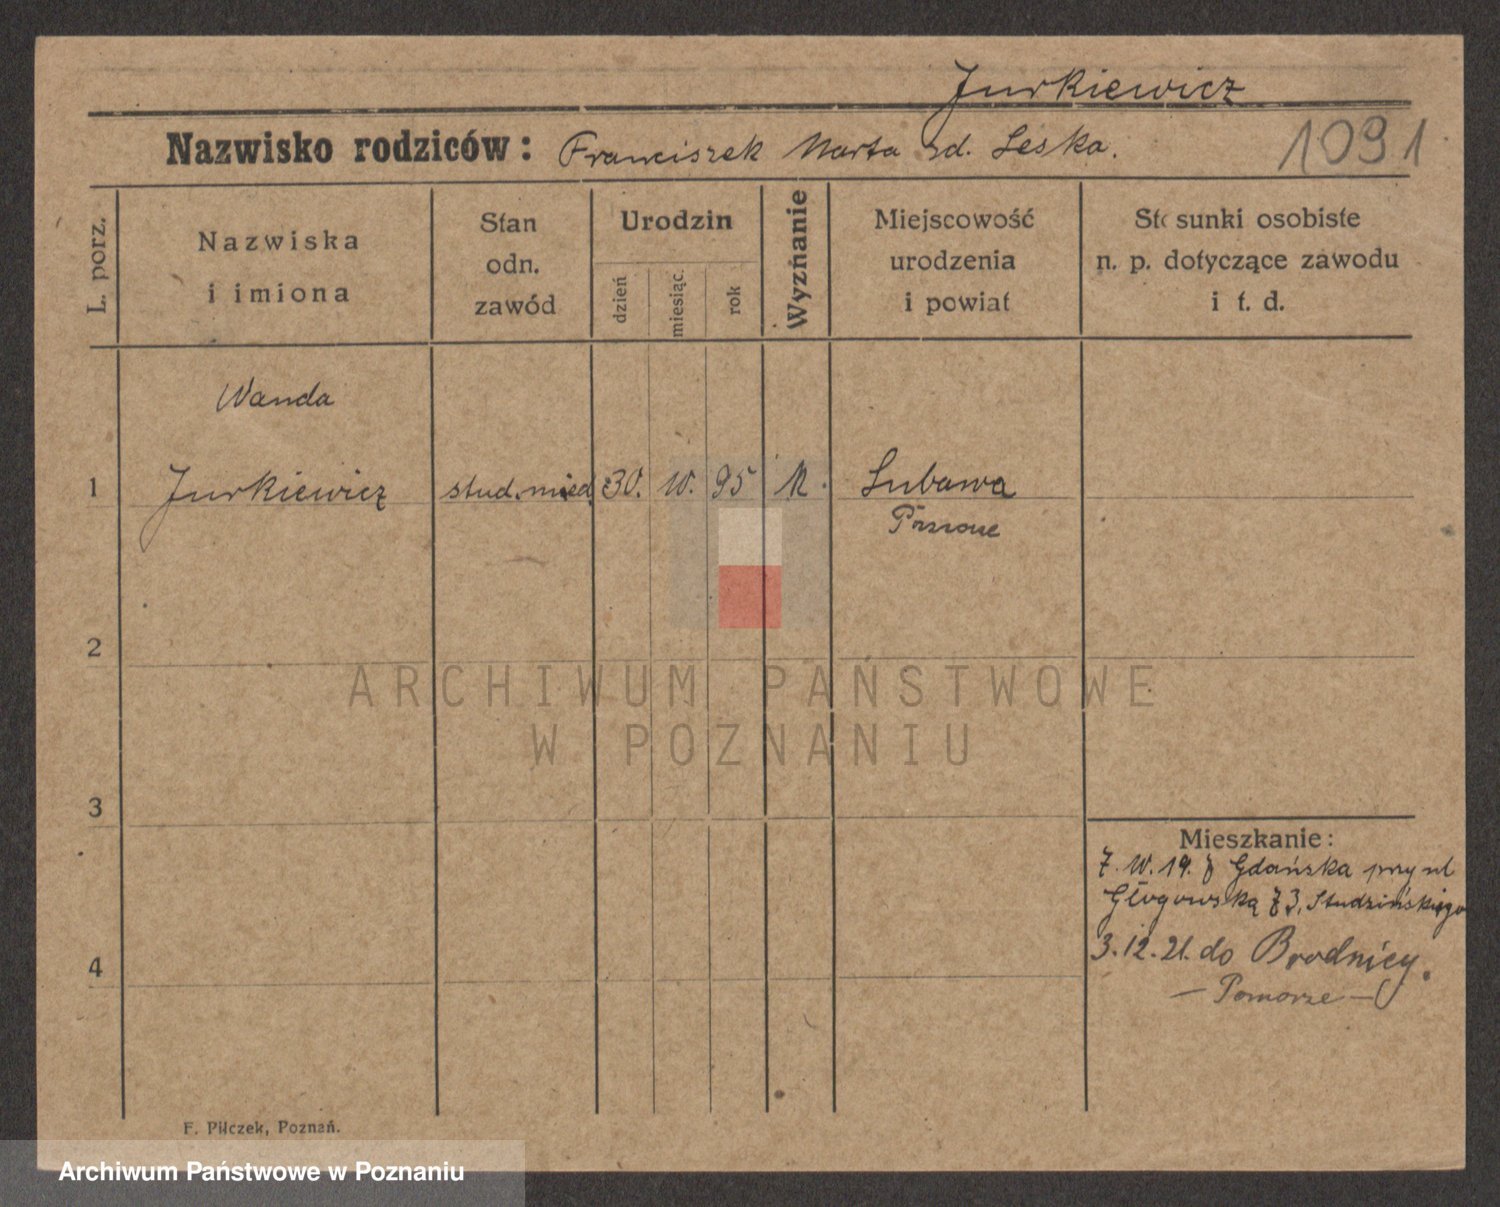 Jurkiewicz
Nazwisko rodziców: Franciszek Marta zd. Leska. 1091
L. porz.
Nazwiska
i imiona
Stan
odn.
zawód
Urodzin
dzień
miesiąc.
rok
Wyznanie
Miejscowość
urodzenia
i powiat
Stosunki osobiste
n. p. dotyczące zawodu
i t. d.
Wanda
1 Jurkiewicz stud. med. 30. 95 Lubawa
2
ARCHIWUM PAŃSTWOWE
W POZNANIU
3
Mieszkanie:
19. Gdańska przy ul
Głogowską Studzińskiego
4 3.12.21. do Brodnicy.
— Pomorze —
F. Pilczek, Poznań.
Archiwum Państwowe w Poznaniu